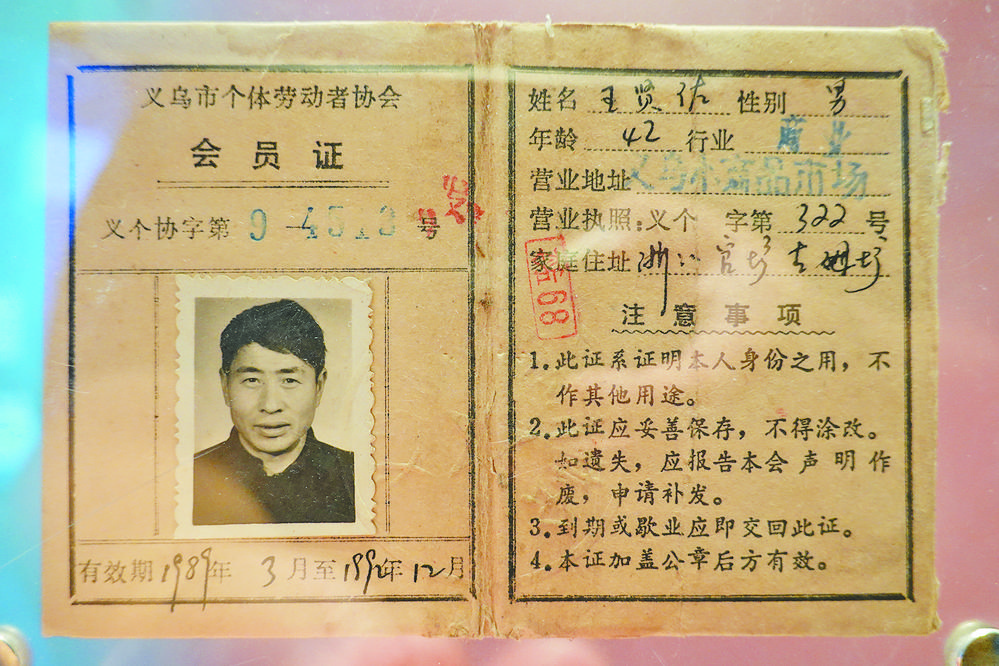 义乌市个体劳动者协会
会员证
义个协字第 9-4513 号
发
有效期1989年3月至1992年12月
姓名 王贤佐 性别 男
年龄 42 行业 商业
营业地址 义乌小商品市场
营业执照：义个 字第 322 号
家庭住址 浙江
68
注意事项
1.此证系证明本人身份之用，不
作其他用途。
2.此证应妥善保存，不得涂改。
如遗失，应报告本会声明作
废，申请补发。
3.到期或歇业应即交回此证。
4.本证加盖公章后方有效。